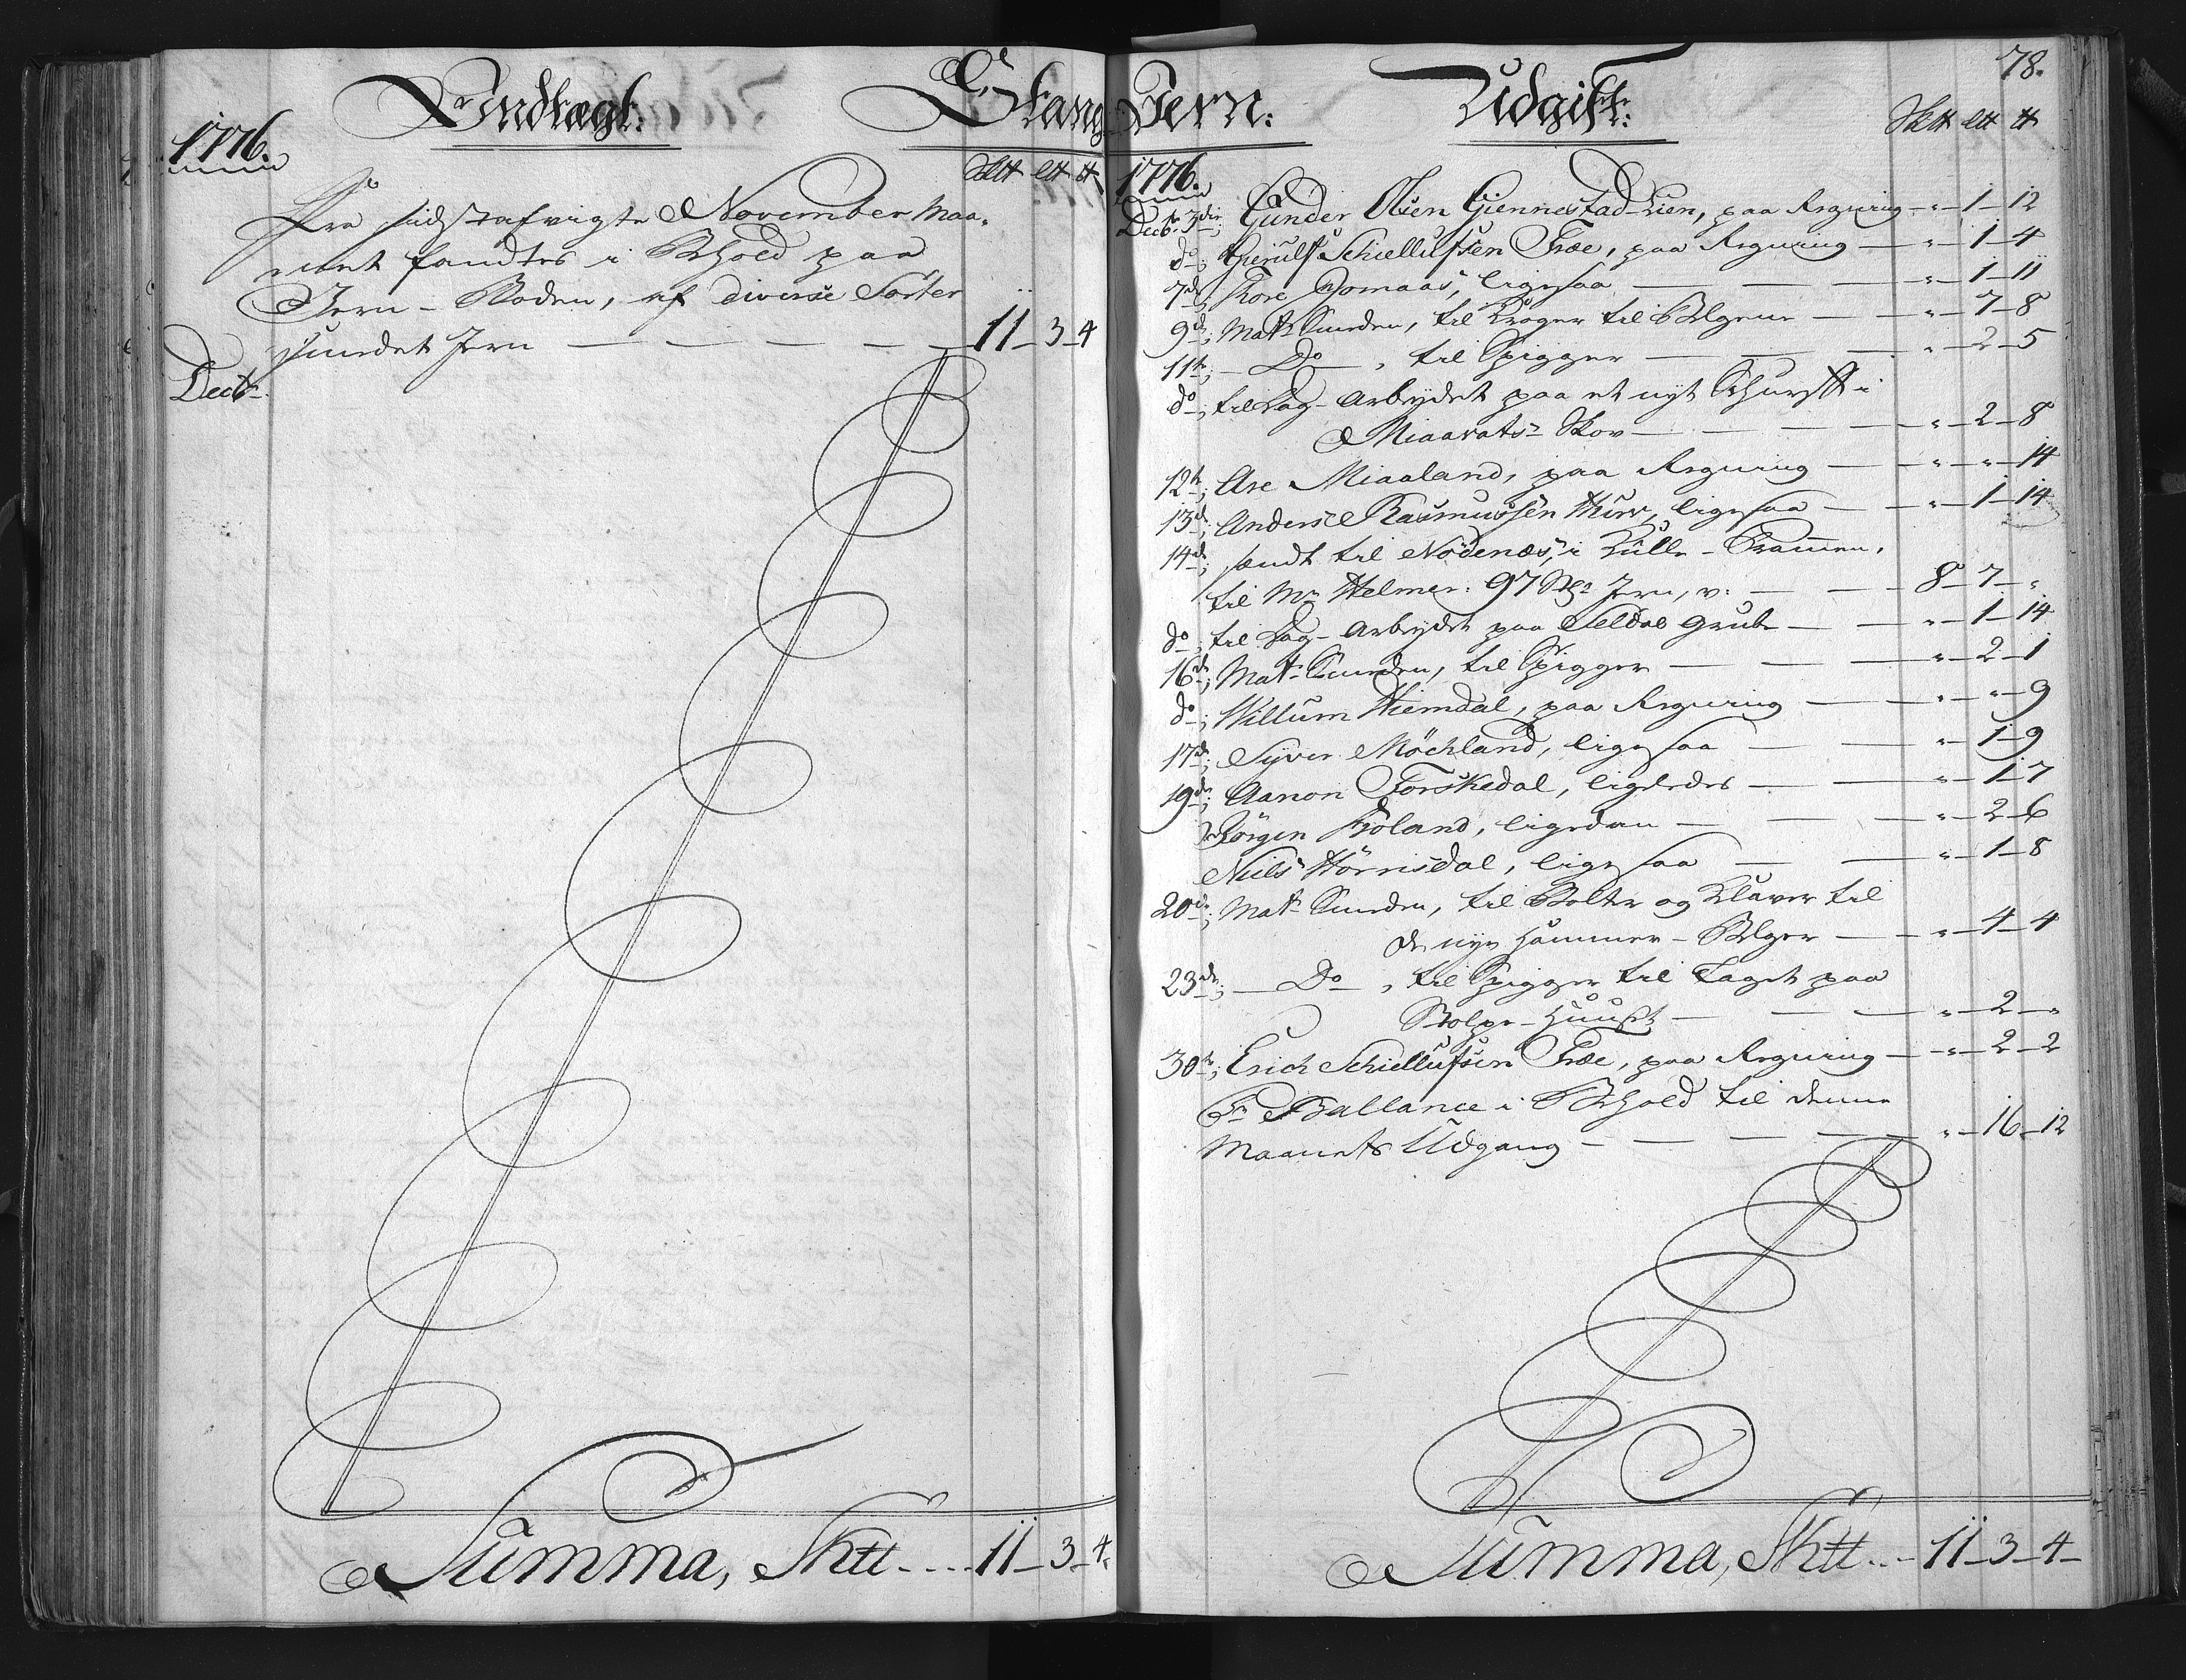 Indtægt.
Stang
1776.
Sk℔ L℔ ℔
Fra sidstafvigte November Maa-
net fandtes i Behold paa
Jern-Boden, af diverse Sorter
smedet Jern — — — — 11 — 3 — 4
Decbr.
Summa, Sk℔ .... 11 — 3 — 4.
78.
Jern:
Udgift:
Sk℔ L℔ ℔
1776.
Decbr. 3die; Gunder Olsen Giennestad-Lien, paa Regning — " — 1 — 12
do; Gierulf Schiellufsen Træe, paa Regning — " — 1 — 4
7de; Tore Domaas, ligesaa — — " — 1 — 11
9de; Matr. Smeden, til Kroger til Belgene — " — 7 — 8
11te; — Do — , til Spigger — — " — 2 — 5
do; til Dag-Arbeydet paa et nyt Skurff i
Miaavats-Skov — — — " — 2 — 8
12te; Are Miaaland, paa Regning — " — " — 14
13de; Anders Rasmussen Hurv, ligesaa — " — 1 — 14
14de; sendt til Nödenæs, i Kulle-Prammen,
til Mr. Helmer: 97 Stgr. Jern, v: — — 8 — 7 — "
do; til Dag-Arbeydet paa Soldal Grube — " — 1 — 14
16de; Matr. Smeden, til Spigger — — " — 2 — 1
do; Willum Hiemdal, paa Regning — " — " — 9
17de; Syver Möchland, ligesaa — — " — 1 — 9
19de; Aanon Torskedal, ligeledes — — " — 1 — 7
Jörgen Froland, ligedan — — " — 2 — 6
Niels Hörrisdal, ligesaa — — " — 1 — 8
20de; Matr. Smeden, til Bolter og Klaver til
de nye Hammer-Belger — " — 4 — 4
23de; — Do — , til Spigger til Taget paa
Stolpe-Huuset — — — " — 2 — "
30te; Erich Schiellufsen Træe, paa Regning — " — 2 — 2
Pr. Ballance i Behold til denne
Maanets Udgang — — — " — 16 — 12
Summa, Sk℔ ... 11 — 3 — 4 —